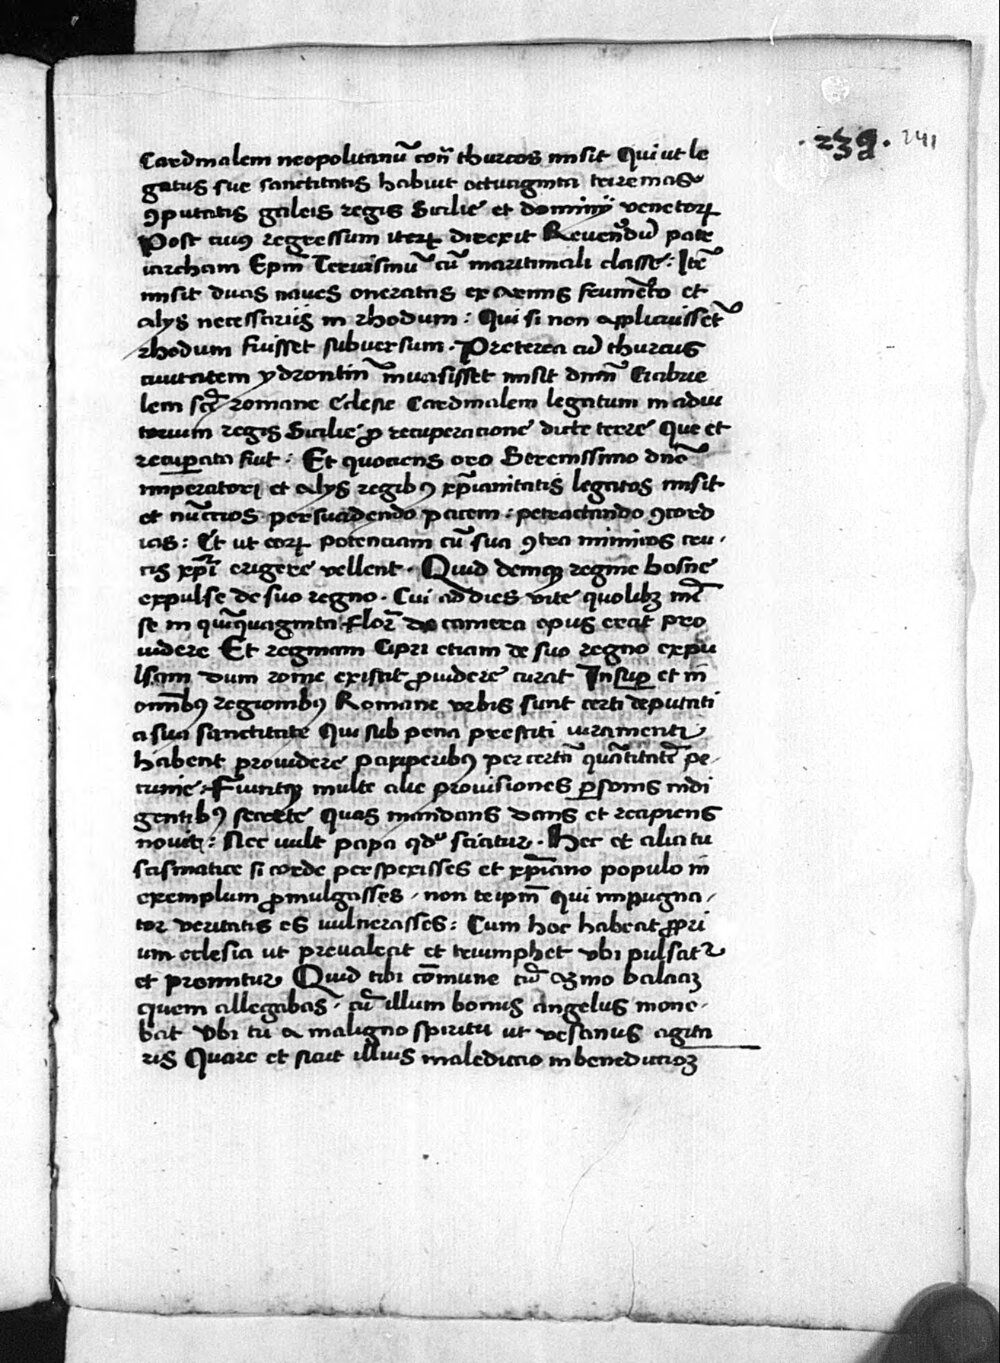 .239. 241
Cardinalem neopolitanũ coñ thurcos misit Qui ut le
gatus sue sanctitatis habuit octuaginta triremas
ꝯputatis galeis regis Sicilie et dominij venetoꝝ
Post cuius regressum iteꝝ direxit Reuendũ patri
iarcham Epm̃ Teruisinũ cũ maritimali classe : Itẽ
misit duas naues oneratas ex armis frumẽto et
alys necessariis in rhodum : Qui si non applicuissẽt
rhodum fuisset subuersum . Preterea cũ thurcus
ciuitatem ydrontin̄ inuasisset misit dnm̃ Gabrie
lem scẽ romane eclesie Cardinalem legatum in adiu
torium regis Sicilie ꝓ recuperacione dicte terre Que et
recuꝑata fuit : Et quociens oro Serenissimo dnõ
imperatori et alys regibꝰ xp̃ianitatis legatos misit
et nũccios persuadendo pacem : pertractando ꝯcord
ias : Et ut eoꝝ potenciam cũ sua ꝯtra inimicos cru .
cis xp̃i erigere vellent . Quid demqꝫ regine bosne
expulse de suo regno . Cui ad dies vite quolibꝫ mẽ
se in quĩquaginta flor̃ de camera opus erat pro
uidere Et reginam Cipri etiam de suo regno expu
lsam dum rome existat ꝓuidere curat Insuꝑ et in
om̃ibꝰ regionibꝰ Romane vrbis sunt certi deputati
a sua sanctitate Qui sub pena prestiti iuramenti
habent prouidere pauperibꝰ per certã quãtitatẽ pe .
cunie . Fiuntqꝫ multe alie prouisiones ꝑsonis indi
gentibꝰ secrete Quas mandans dans et recipiens
nouit : Nec uult papa qdˀ sciatur . Hec et alia tu
scismatice si corde perspexisses et xp̃iano populo in
exemplum ꝓmulgasses , non teipm̃ qui impugna ,
tor veritatis es uulnerasses : Cum hoc habeat ꝓpri
um eclesia ut preualeat et triumphet vbi pulsatˀ
et premitur Quid tibi cõmune cũ asino balaaꝫ
quem allegabas , cũ illum bonus angelus mone .
bat vbi tu a maligno spiritu ut vesanus agita
ris Quare et sicut illius maledictio in benedictioꝫ